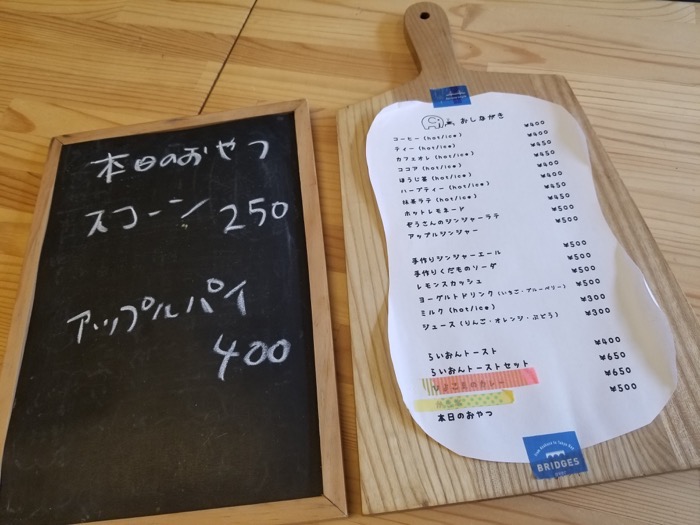 本日のおやつ
スコーン 250
アップルパイ
400
おしながき
コーヒー (hot/ice) ¥400
ティー (hot/ice) ¥400
カフェオレ (hot/ice) ¥450
ココア (hot/ice) ¥450
ほうじ茶 (hot/ice) ¥400
ハーブティー (hot/ice) ¥400
抹茶ラテ (hot/ice) ¥450
ホットレモネード ¥450
ぞうさんのジンジャーラテ ¥500
アップルジンジャー ¥500
手作りジンジャーエール ¥500
手作りくだものソーダ ¥500
レモンスカッシュ ¥500
ヨーグルトドリンク (いちご・ブルーベリー) ¥500
ミルク (hot/ice) ¥300
ジュース (りんご・オレンジ・ぶどう) ¥300
らいおんトースト ¥400
らいおんトーストセット ¥650
ひよこ豆のカレー ¥650
¥500
本日のおやつ
BRIDGES